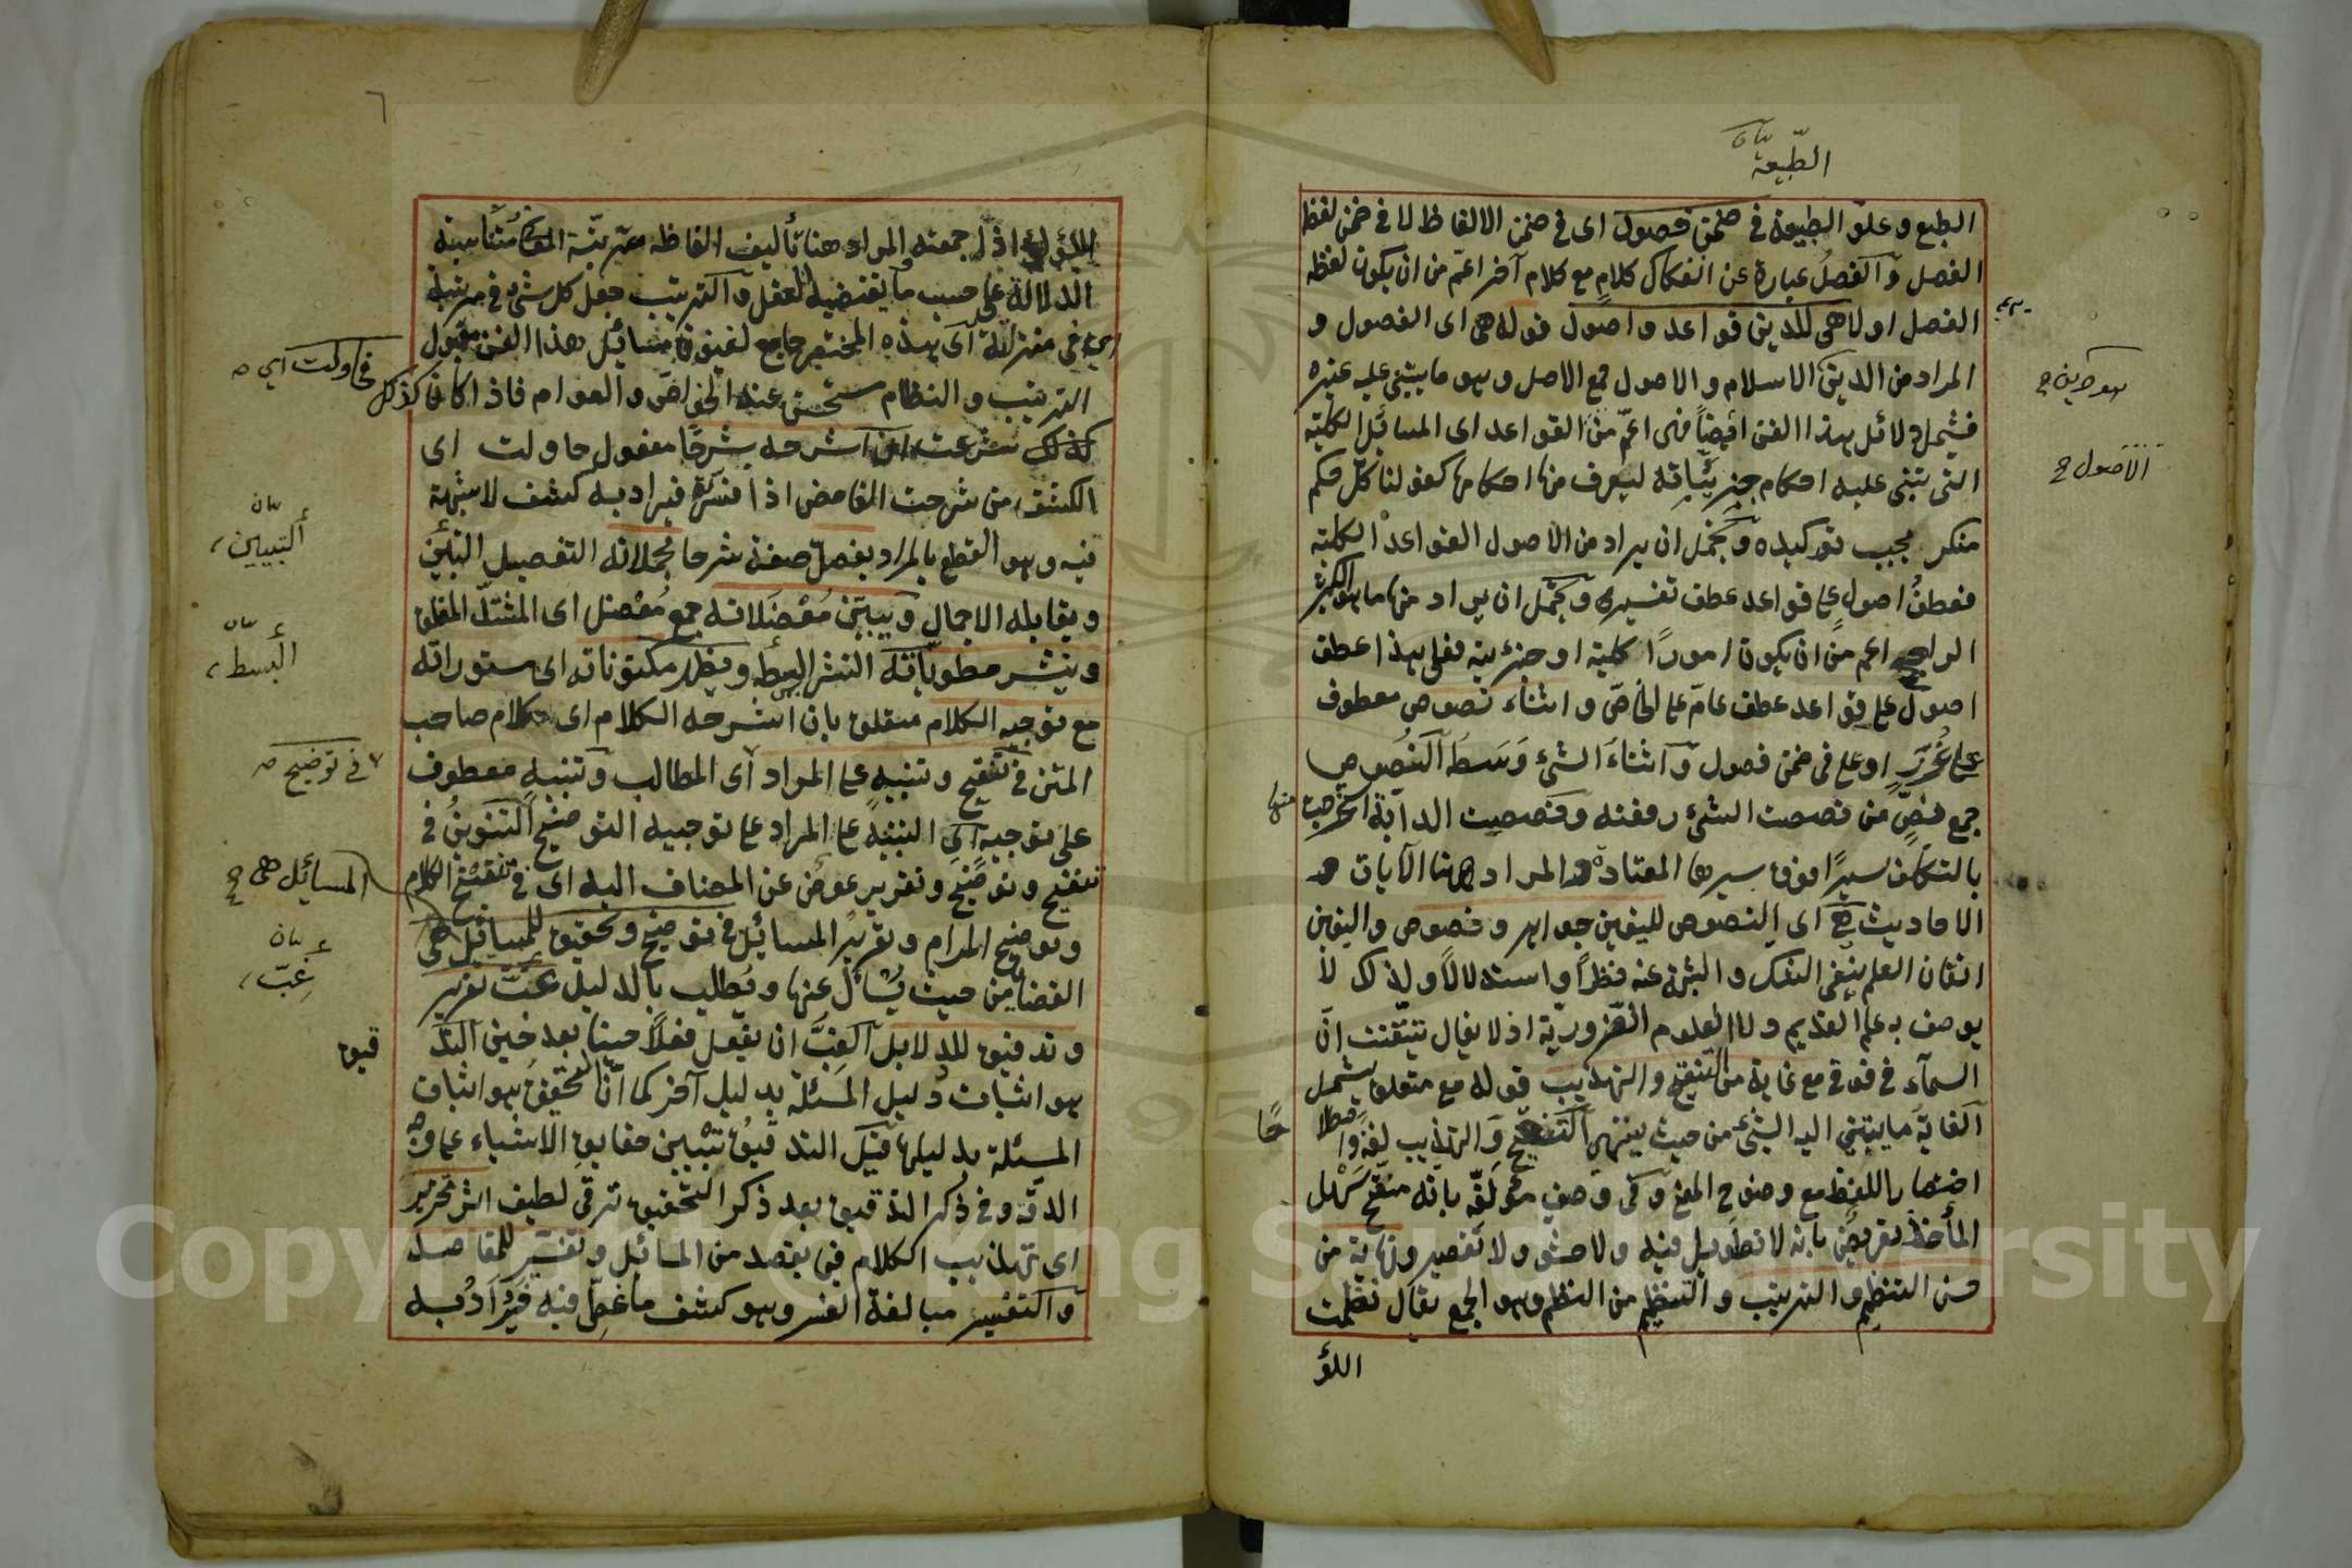 الطبيعة بيان
الطبع وعلو الطبيعة في ضمن فصول اى في ضمن الالفاظ لا في ضمن لفظ
الفصل والفصل عبارة عن انفكاك كلام مع كلام آخر اعم من ان يكون لفظه
الفصل اولا هى للدين قواعد واصول قوله هى اى الفصول و
المراد من الدين الاسلام والاصول جمع الاصل وهو ما يبتنى عليه غيره
فيشمل دلائل هذا الفن ايضا فهى اعم من القواعد اى المسائل الكلية
التى تبنى عليه احكام جزئياته ليعرف منها احكامها كقولنا كل حكم
منكر يجب توكيده ويحتمل ان يراد من الاصول القواعد الكلية
فعطف اصول على قواعد عطف تفسير ويحتمل ان يراد منها ما هو الكثير
الراجح اعم من ان يكون امورًا كلية او جزئية فعلى هذا عطف
اصول على قواعد عطف عام على الخاص واثناء نصوص معطوف
على غرر او على في ضمن فصول واثناء الشئ وسط النصوص
جمع نص من نصصت الشئ رفعته ونصصت الدابة استخرجت منها
بالتكلف سيرًا فوق سيرها المعتادة والمراد ههنا الآيات و
الاحاديث هى اى النصوص لليقين جواهر وفصوص واليقين
اتقان العلم بنفى الشك والشبهة عنه نظرًا واستدلالًا ولذلك لا
يوصف به علم القديم ولا العلوم الضرورية اذ لا يقال تيقنت ان
السماء في فوقى مع غاية من التنقيح والتهذيب قوله مع متعلق يشمل
الغاية ما ينتهى اليه الشئ من حيث ينتهى التنقيح والتهذيب لغة واصطلا
حًا
اختصار اللفظ مع وضوح المعنى وكى وصف مؤلفه بانه منقح سهل
المأخذ تعريض بانه لا تطويل فيه ولا حشو ولا تقصير ونهاية من
حسن التنظيم والترتيب والتنظيم من النظم وهو الجمع يقال نظمت
اللؤ
الاصول ح
٦
اللؤلؤ اذا جمعته والمراد هنا تأليف الفاظه مترتبة المعانى متناسبة
الدلالة على حسب ما يقتضيه العقل والترتيب جعل كل شئ في مرتبته
اى في منزلته اى هذه المختصر جامع لفنون مسائل هذا الفن مقبول
الترتيب والنظام مستحسن عند الخواص والعوام فاذا كان كذلك
كذلك شرعت ان اشرحه شرحًا مفعول حاولت اى
الكشف من شرحت الغامض اذا فسرته فيراد به كشف لا شبهة
فيه وهو القطع بالمراد يفصل صفة شرحا مجملاته التفصيل التبيين
ويقابله الاجمال ويبين معضلاته جمع معضل اى المشكل المغلق
وينشر مطوياته النشر البسط ويظهر مكنوناته اى مستوراته
مع توجيه الكلام متعلق بان اشرحه الكلام اى كلام صاحب
المتن في تنقيح وتنبيه على المراد اى المطالب وتنبيه معطوف
على توجيه اى التنبيه على المراد على توجيه التوضيح التنوين في
تنقيح وتوضيح وتقرير عوض عن المضاف اليه اى في تنقيح الكلام
وتوضيح المرام وتقرير المسائل في توضيح وتحقيق للمسائل هى
القضايا من حيث يسأل عنها ويطلب بالدليل غب تقرير
وتدقيق للدلائل الغب ان يفعل فعلًا حينا بعد حين التد
قيق
هو اثبات دليل المسئلة بدليل آخر كما ان التحقيق هو اثبات
المسئلة بدليلها قيل التدقيق تبيين حقايق الاشياء على وجه
الدقة وفي ذكر التدقيق بعد ذكر التحقيق ترقى لطيف اثر تحرير
اى تهذيب الكلام فى يقصد من المسائل وتفسير للمقاصد
والتفسير مبالغة الفسر وهو كشف ما غطى فيه فيراد به
في حاولت اى ص
بيان
التبيين
بيان
البسط
في توضيح ص
المسائل هى ح
بيان
غب